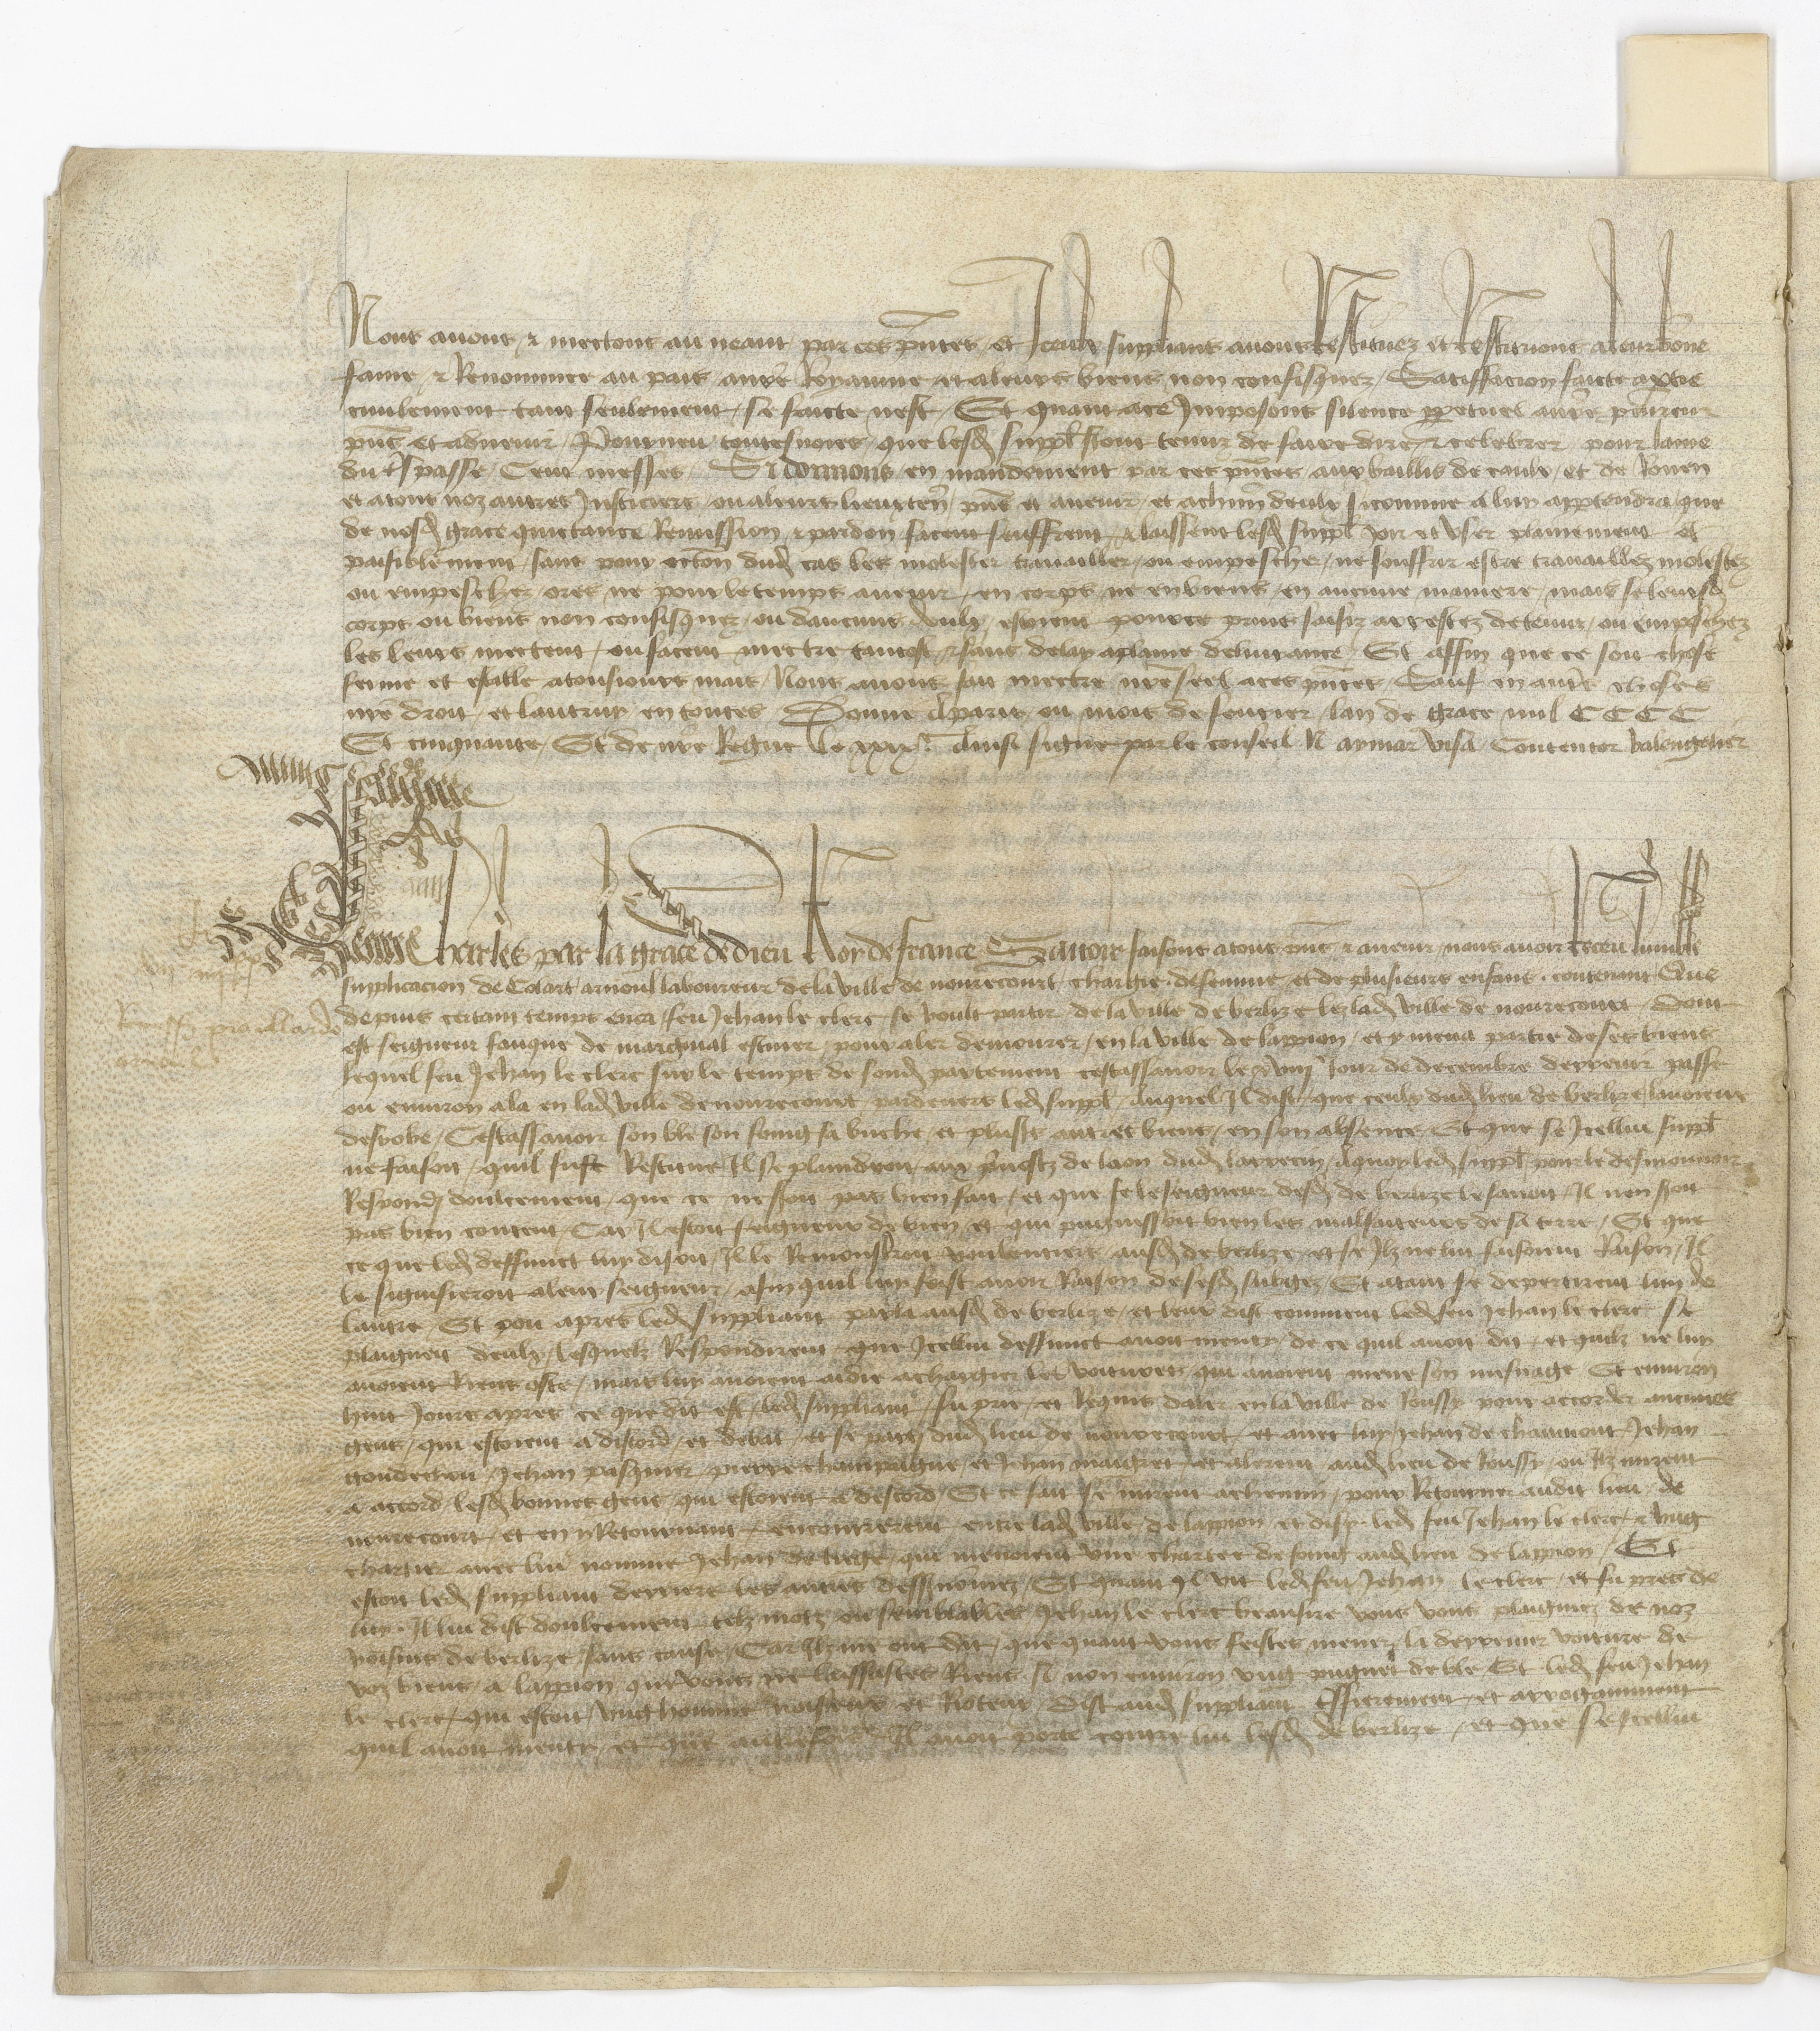 Nous avons & mectons au neant par ces pñtes et Iceulx supplians avons restituez et restituons a leur bone
fame & Renommee au pais a nr̃e Royaume et a leurs biens non confisquez Satiffacion faicte a ptie
civilement tant seulement se faicte nest Et quant a ce Imposons silence ppetuel a nr̃e procureur
pñt et advenir Pourveu toutesvoies que lesd suppl̃ seront tenuz de faire dire & celebrer pour lame
du tr̃spasse Cent messes Si donnons en mandement par ces pñtes aux baillis de caulx et de Rouen
et a tous noz autres Justiciers ou a leurs lieuxteñ pñs et avenir et a chũn deulx si comme a luy appartendra que
de nosd grace quictance Remission & pardon facent seuffrent & laissent lesd suppl̃ joir et user plainement et
paisiblement sans pour occõn dud cas les molester travailler ou empescher ne souffrir estre travaillez molestez
ou empeschez ores ne pour le temps avenir en corps ne en biens en aucune maniere mais se leursd
corps ou biens non confisquez ou daucuns deulx estoient pource prins saisiz arrestez detenuz ou empeschez
les leurs mectent ou facent mectre tantost & sans delay a plaine delivrance Et affin que ce soit chose
ferme et estable a tousjours mais Nous avons fait mectre nr̃e seel a ces pñtes Sauf en aut̃s choses
nr̃e droit et lautruy en toutes Donne a paris ou mois de fevrier lan de grace mil CCCC
Et cinquante Et de nr̃e Regne le xxix.e Ainsi signe par le conseil N aymar Visa Contentor Valengelier
Charles par la grace de dieu Roy de france Savoir faisons a tous pñs & avenir nous avoir receu lumble
supplicacion de Colart arnoul laboureur de la ville de nouvecourt chargie de femme et de plusieurs enfans contenant Que
depuis certain temps enca feu Jehan le clerc se voult partir de la ville de berlize lez lad ville de nouvecourt Dont
est seigneur fouque de marginal escuier pour aler demourer en la ville de lappion et y mena partie de ses biens
lequel feu Jehan le clerc sur le temps de sond partement cestassavoir le xviij.e Jour de decembre derrenier passe
ou environ ala en lad ville de nouvecourt pardevers led suppl̃ Auquel Il dist que ceulx dud lieu de berlize lavoient
desrobe Cestassavoir son ble son foing sa buche et plus̃s autres biens en son absence Et que se Icellui suppl̃
ne faisoit quil fust Restitue Il se plaindroit aux prevostz de laon dud larrecin A quoy led suppl̃ pour le desmouvoir
Respondj doulcement que ce ne seroit pas bien fait et que se le seigneur desd de berlize le savoit Il nen seroit
pas bien content Car Il estoit seigneur de bien et qui pugnissoit bien les malfaiteurs de sa terre Et que
ce que led deffunct luy disoit Il le Remonstreroit voulentiers ausd de berlize et se Ilz ne lui faisoient Raison Il
le signifieroit a leur seigneur afin quil luy feist avoir Raison de sesd subgez Et atant se departirent lun de
lautre Et pou apres led suppliant parla ausd de berlize et leur dist comment led feu Jehan le clerc se
plaignoit deulx lesquelz Respondirent que Icellui deffunct avoit menty de ce quil avoit dit et quilz ne luy
avoient Riens oste mais luy avoient aidie a chargier les voitures qui avoient mene son mesnage Et environ
huit Jours apres ce que dit est led suppliant fu prie et Requis daler en la ville de Roussy pour accorder aucunes
gens qui estoient a discord et debat et se party dud lieu de nouvecourt et avec luy Jehan de chaumont Jehan
Jehan pasquier pierre champaigne et Jehan maigret et alerent aud lieu de Roussy ou Ilz mirent
a accord lesd bonnes gens qui estoient a descord Et ce fait se mirent a chemin pour Retourner audit lieu de
nouvecourt et en y Retournant encontrerent entre lad ville de lappion et disy led feu Jehan le clerc & ung
chartier avec lui nomme Jehan de liege qui menoient une charree de foing aud lieu de lappion Et
estoit led suppliant derriere les autres dessusnõmez Et quant Il vit led feu Jehan le clerc et fu pres de
luy Il lui dist doulcement telz motz ou semblables Jehan le clerc beausire vous vous plaignez de noz
voisins de berlize sans cause Car Ilz me ont dit que quant vous feistes mener la derreniere voiture de
voz biens a lappion que vous ne laissastes Riens si non environ ung pugnet de ble Et led feu Jehan
le clerc qui estoit ung homme noiseux et Rioteux Dist aud suppliant t̃sfierement et arrogamment
quil avoit menty et que autresfois Il avoit porte contre lui lesd de berlize et que se Icellui